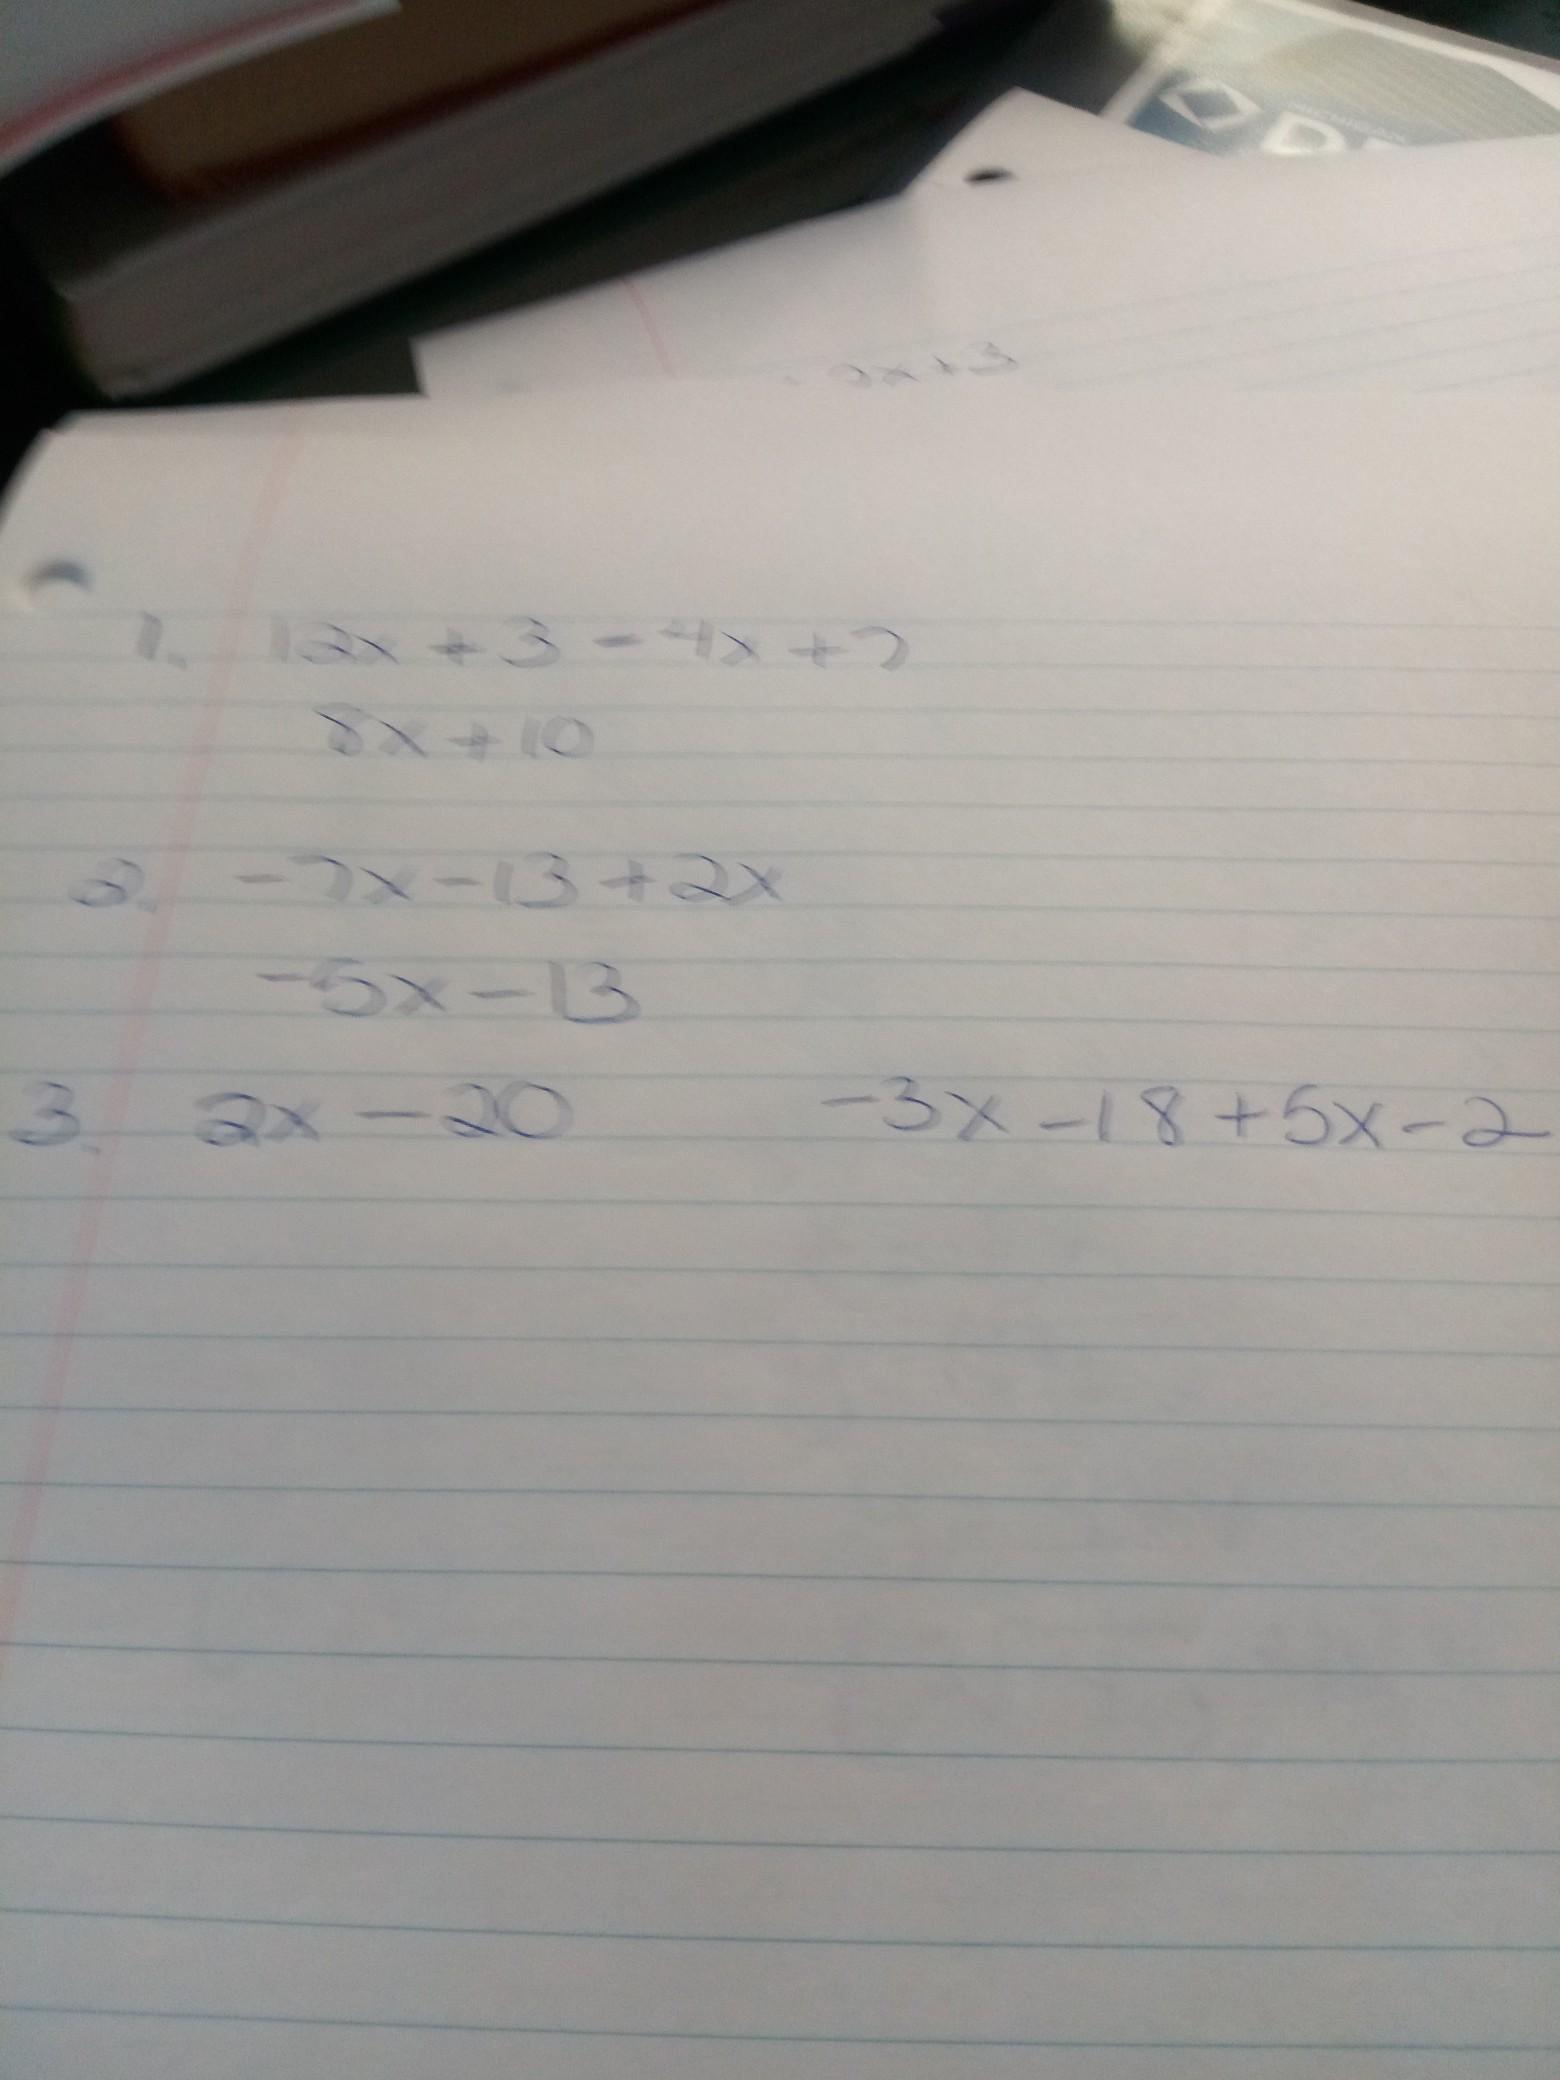 DE
3x+3
1. 12x + 3 - 4x + 7
8x + 10
2. -7x - 13 + 2x
-5x - 13
3. 2x - 20 -3x - 18 + 5x - 2